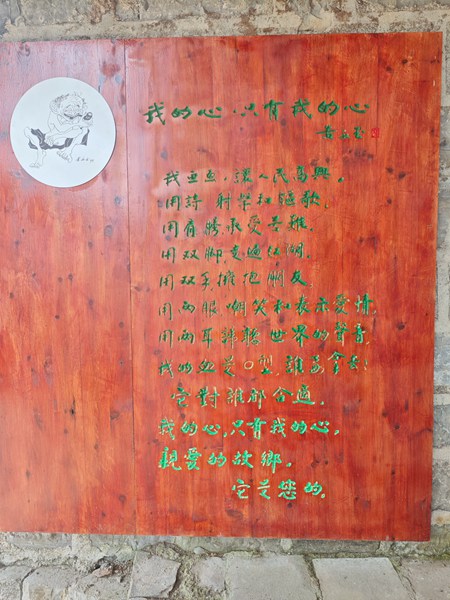 我的心，只有我的心
黄永玉
我画画，讓人民高興，
用詩射擊和謳歌，
用肩膀承受苦難，
用双脚走遍江湖，
用双手擁抱朋友，
用两眼嘲笑和表示愛情，
用两耳諦聽世界的聲音，
我的血是O型，誰要拿去；
它對誰都合適。
我的心，只有我的心，
親愛的故鄉，
它是您的。